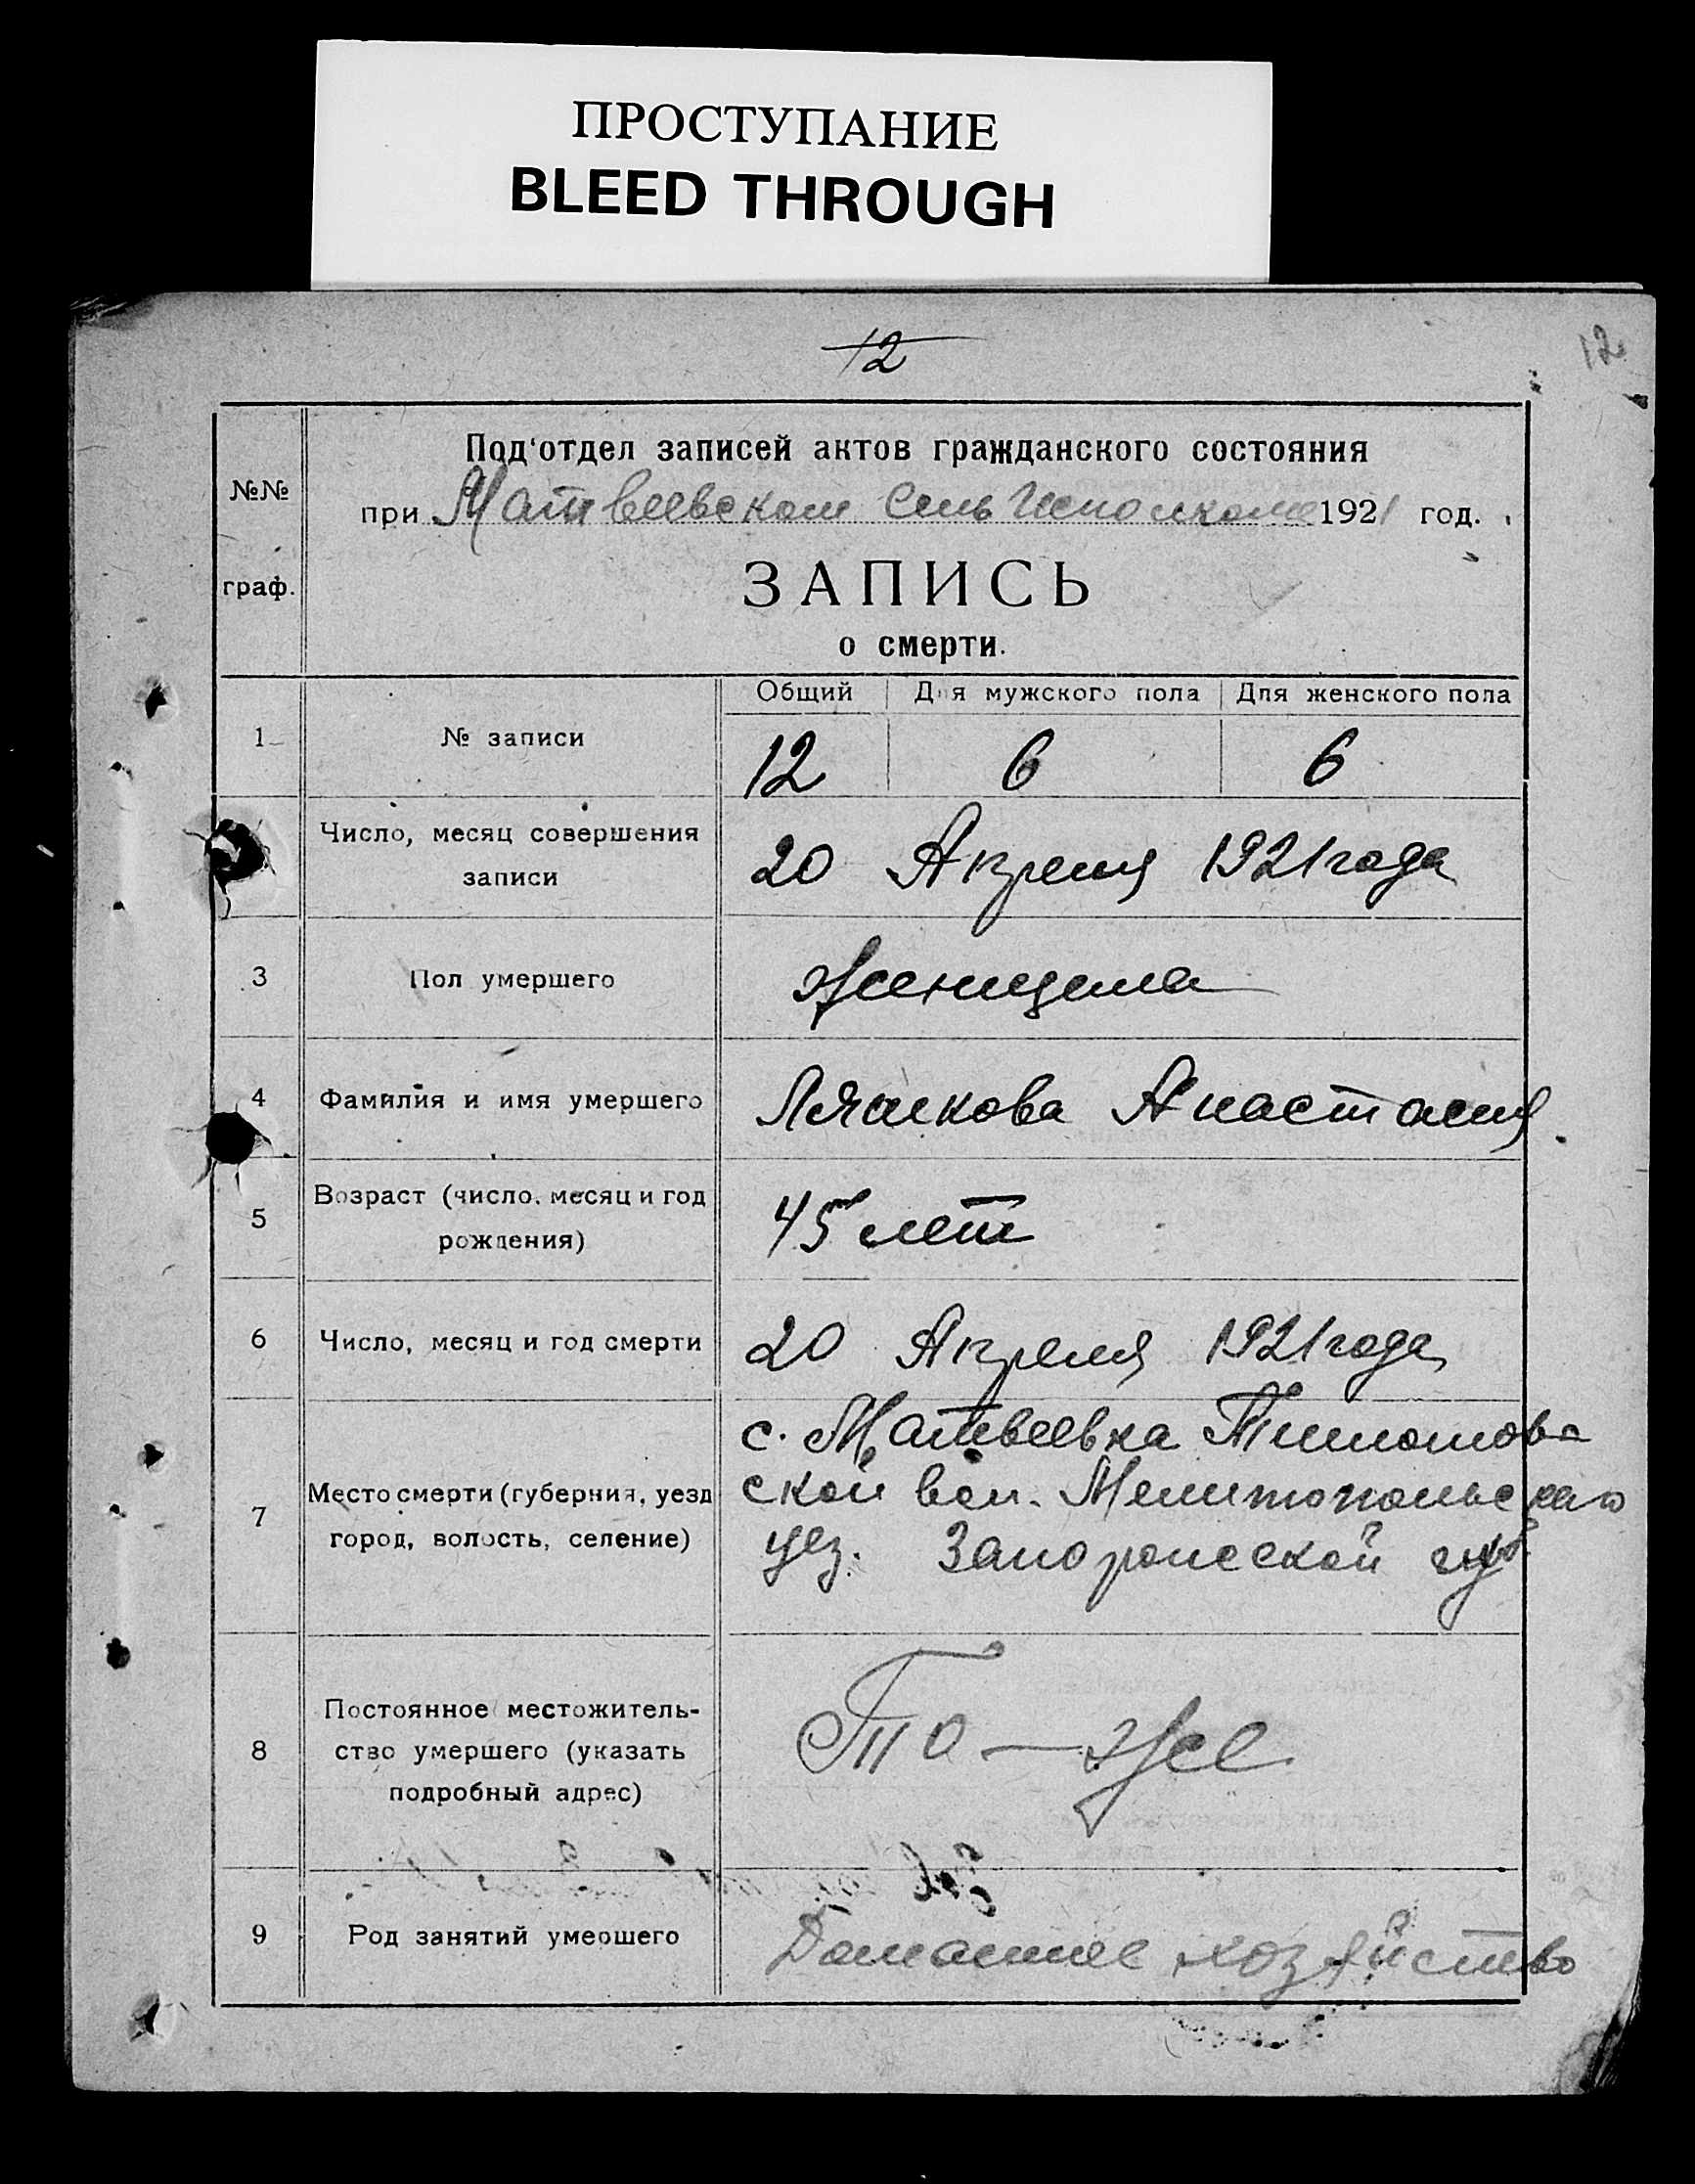 ПРОСТУПАНИЕ
BLEED THROUGH
12
12
Под'отдел записей актов гражданского состояния
№№
при Матвеевском Сель Исполкоме 1921 год.
граф.
ЗАПИСЬ
о смерти.
Общий Для мужского пола Для женского пола
1 № записи 12 6 6
Число, месяц совершения
записи
20 Апреля 1921 года
3 Пол умершего Женщина
4 Фамилия и имя умершего Анастасия
5 Возраст (число, месяц и год
рождения)
45 лет
6 Число, месяц и год смерти 20 Апреля 1921 года
7 Место смерти (губерния, уезд
город, волость, селение)
с. Матвеевка
ской вол. Мелитопольскаго
уез. Запорожской губ.
8 Постоянное местожитель-
ство умершего (указать
подробный адрес)
То-же
9 Род занятий умершего Домашнее хозяйство